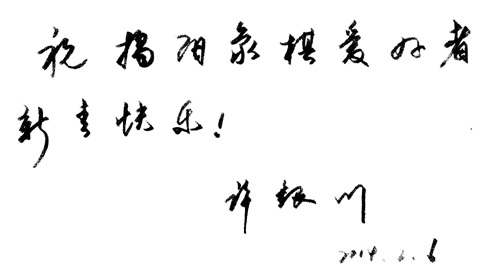 祝揭阳象棋爱好者
新春快乐!
许银川
2014.2.6